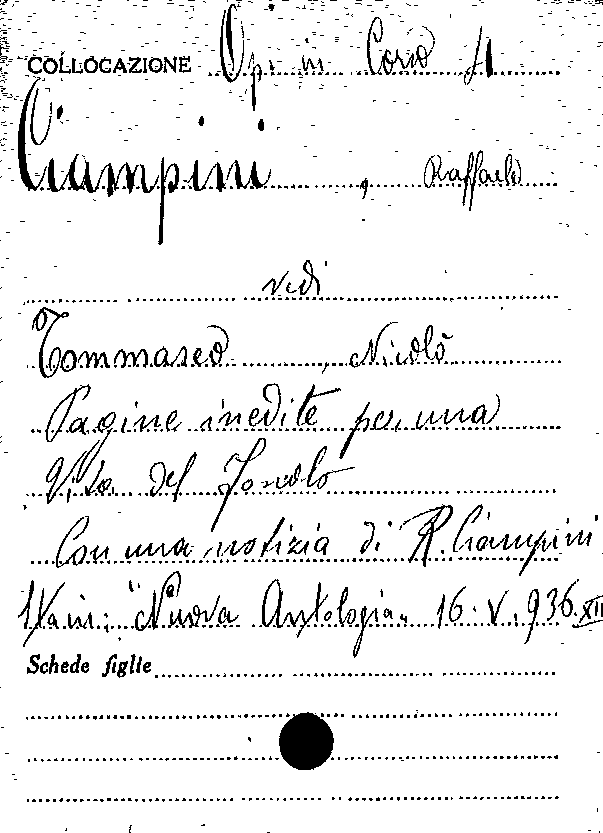 COLLOCAZIONE Op. in Corso 41
Ciampini, Raffaele
vedi
Tommaseo, Nicolò
Pagine inedite per una
Vita del
Con una notizia di R. Ciampini
in: "Nuova Antologia„ 16. V. 936.
Schede figlie